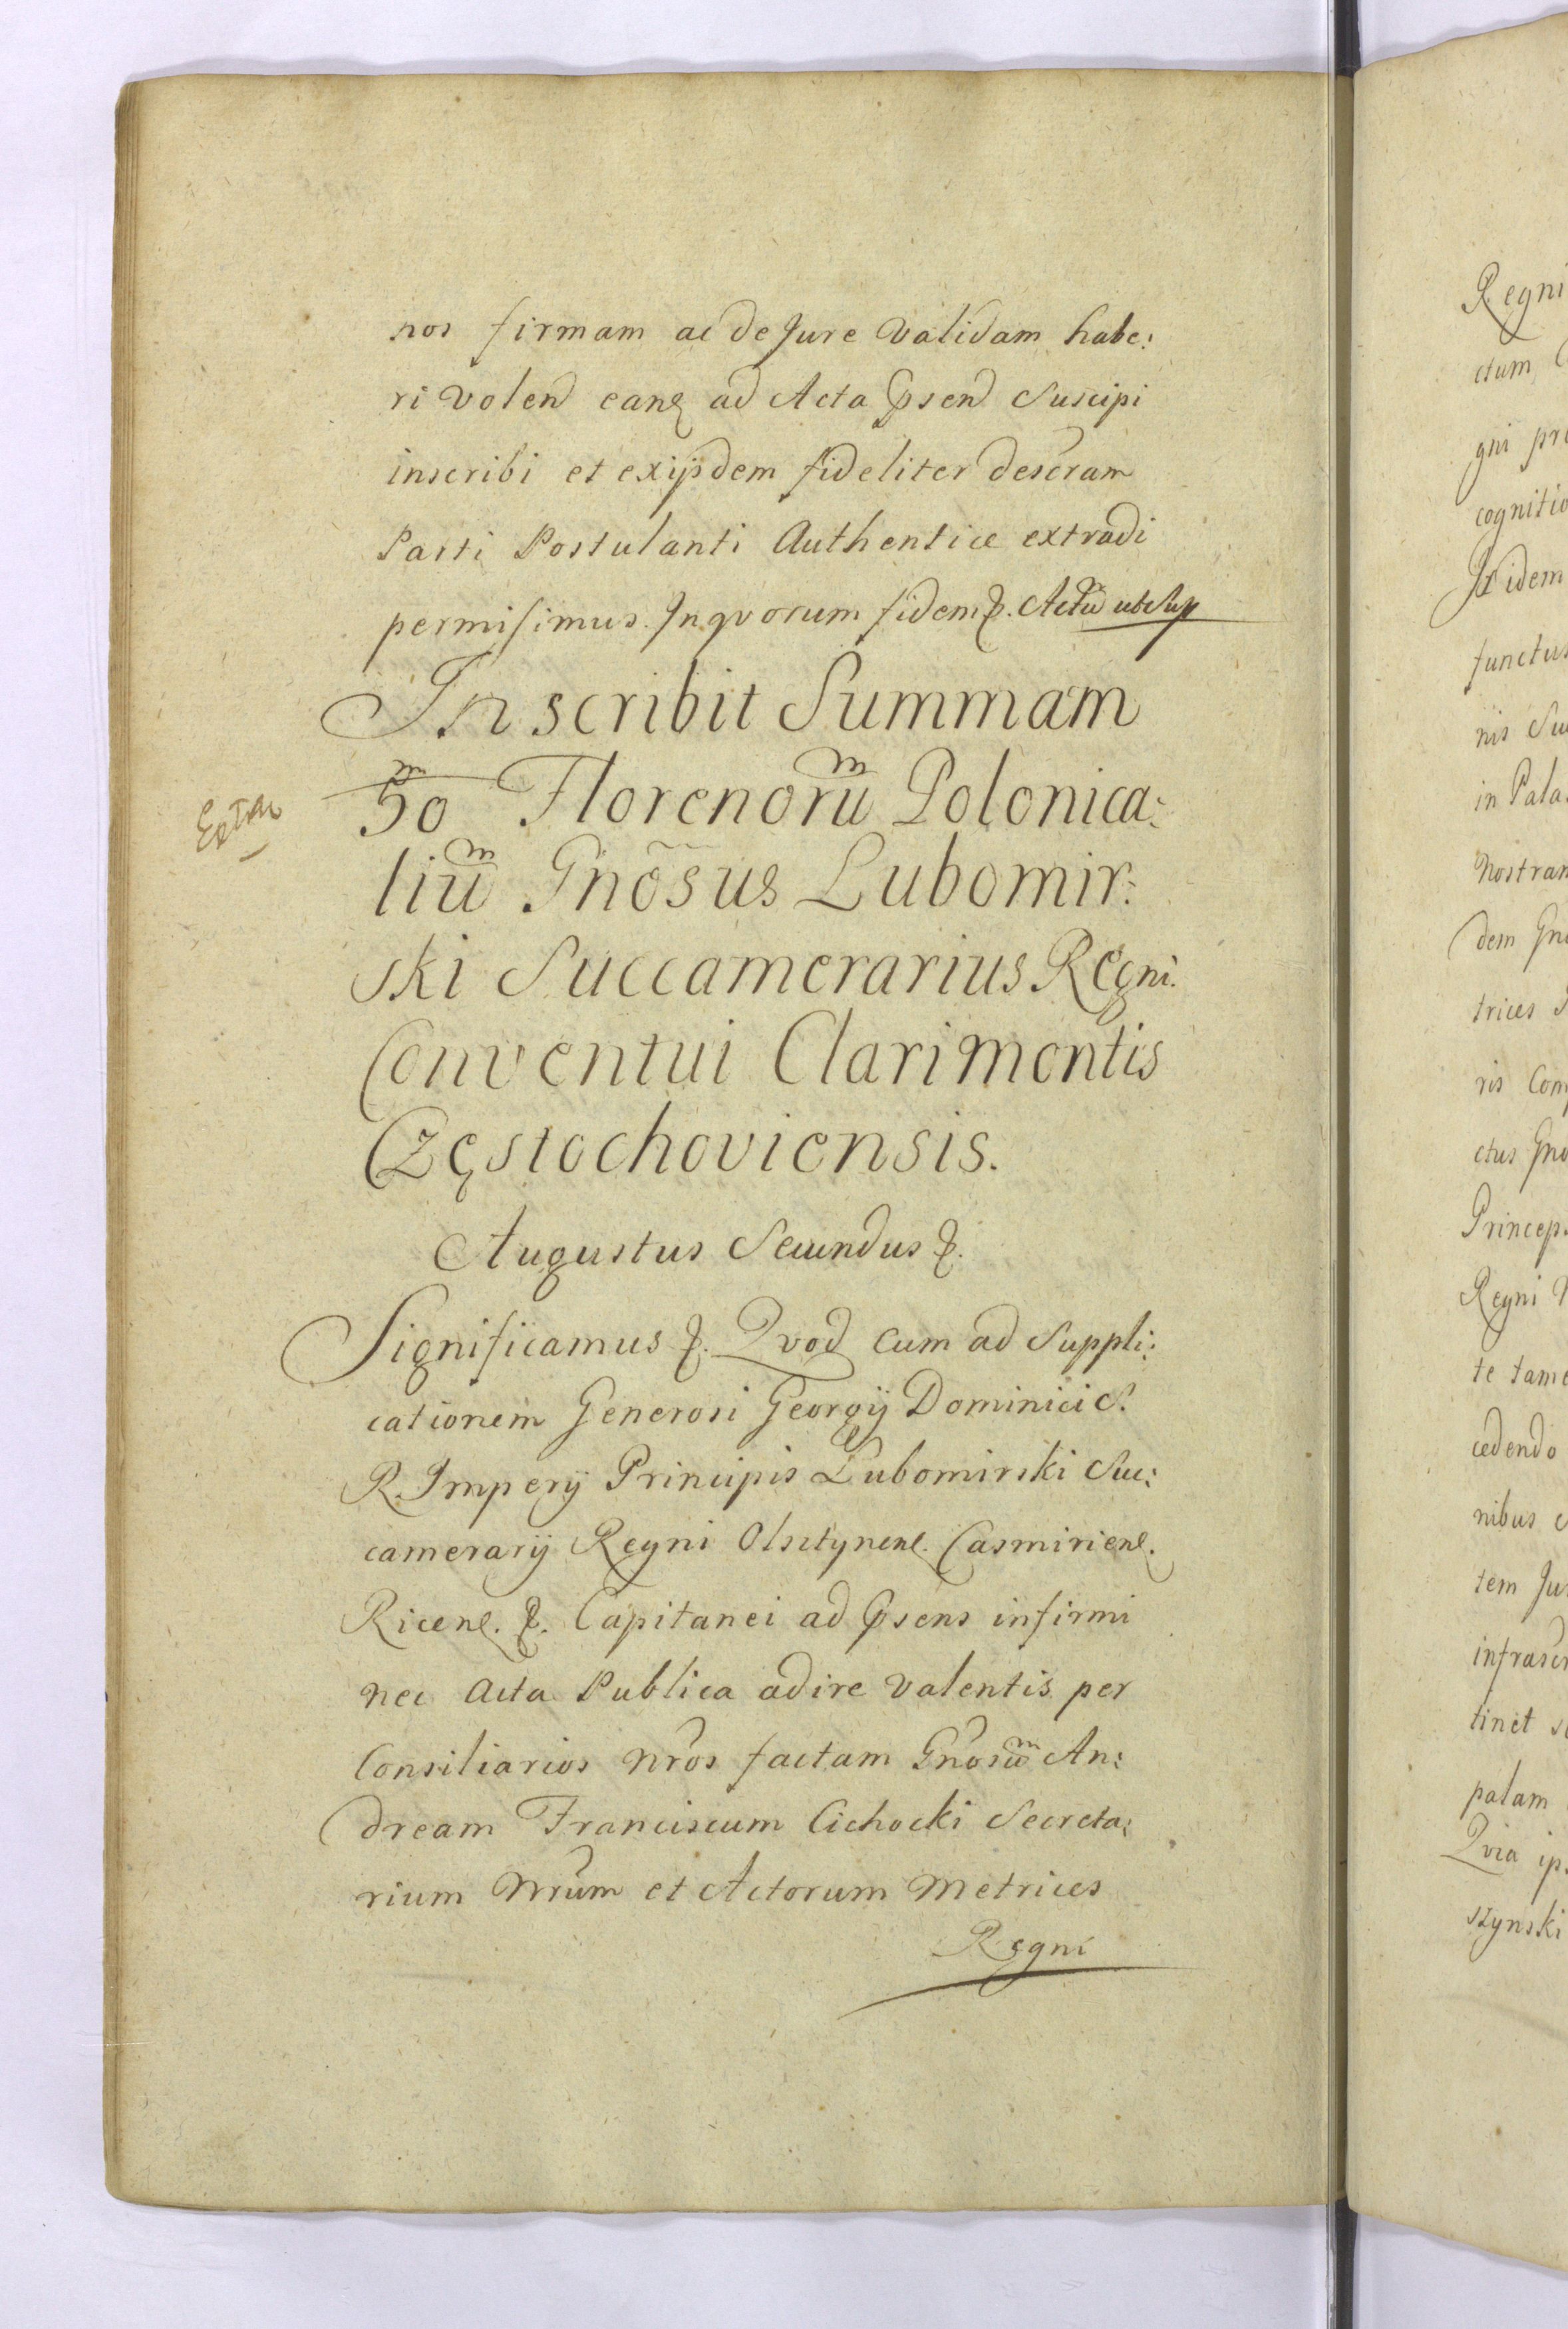 nos firmam ac de Jure validam habe:
ri volend eanq ad Acta psend suscipi
inscribi et exijsdem fideliter descram
Parti Postulanti Authentice extradi
permisimus. Inqvorum fidem &. Actũ ut sup
Inscribit Summam
50 m Florenorũm Polonica:
liũm Gnõsus Lubomir:
ski Succamerarius Regni.
Conventui Clarimontis
Częstochoviensis.
Augustus Secundus &.
Significamus &. Qvod cum ad suppli:
cationem Generosi Georgij Dominici S.
R. Imperij Principis Lubomirski Suc:
camerarij Regni Olsztynens. Casmiriens.
Ricens. &. Capitanei ad psens infirmi
nec Acta Publica adire valentis per
Consiliarios nros factam Gnosũm An:
dream Franciscum Cichocki Secreta:
rium Nrum et Actorum Metrices
Regni
Regni
ctum
gni
cognitio
Ibidem
functus
nis
in Pala
Nostram
dem
trices
ris
ctus
Princeps
Regni
te tame
cedendo
nibus
tem
infrascr
tinet
palam
Qvia
szynski